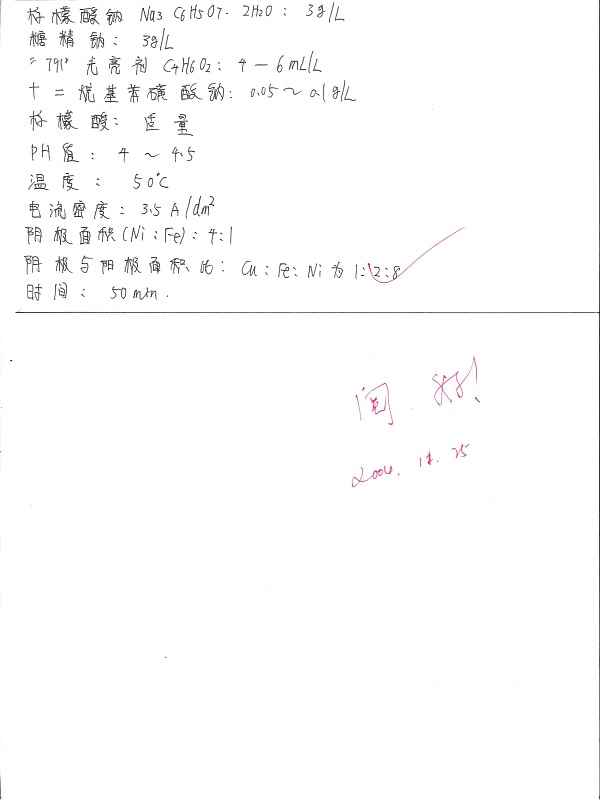 柠檬酸钠 Na3 C6H5O7·2H2O: 3g/L
糖精钠: 3g/L
"791" 光亮剂 C4H6O2: 4 — 6 mL/L
十二烷基苯磺酸钠: 0.05 ~ 0.1 g/L
柠檬酸: 适量
PH值: 4 ~ 4.5
温度: 50℃
电流密度: 3.5 A/dm²
阴极面积(Ni:Fe): 4:1
阴极与阳极面积比: Cu:Fe:Ni为 1:2:8
时间: 50 min.
阅